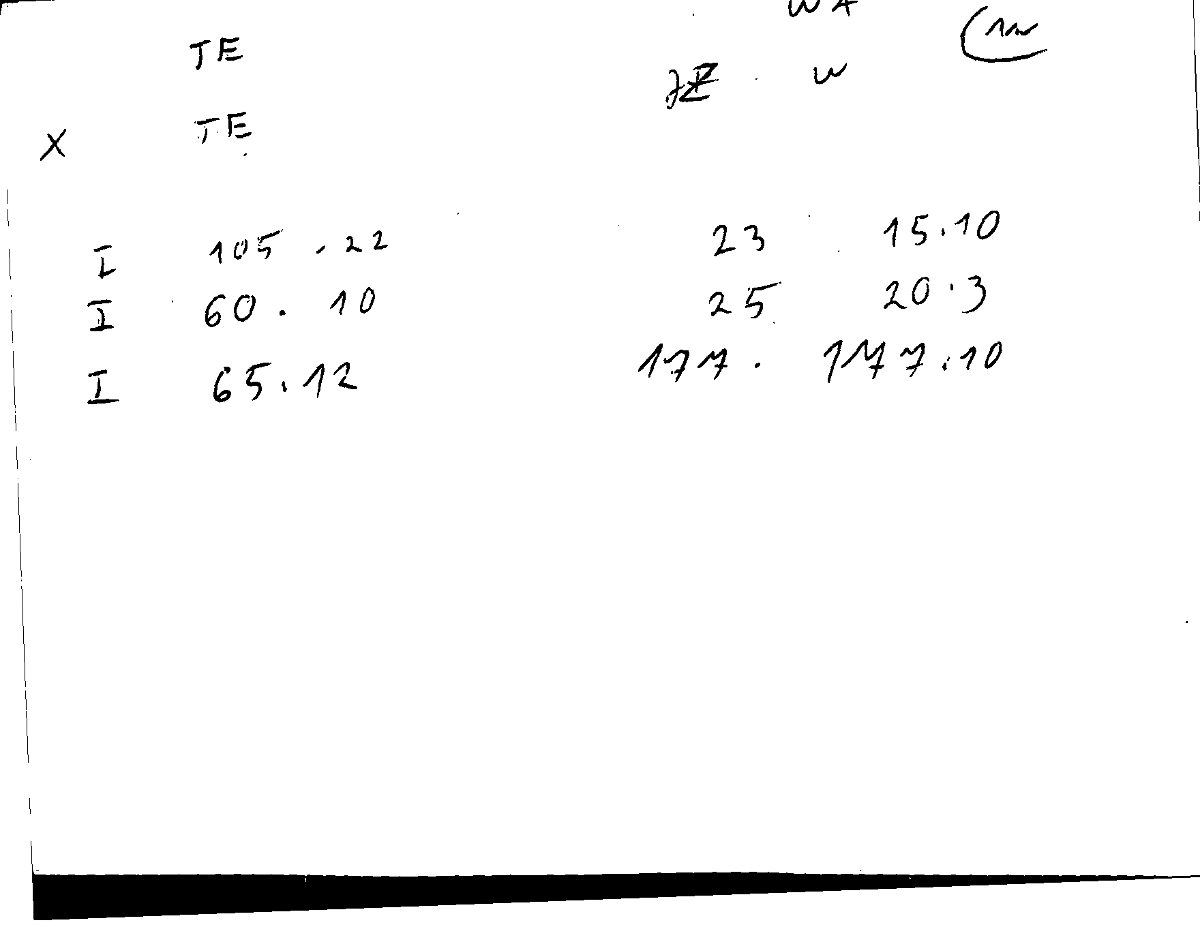 TE
W
X TE
I 105 . 22 23 15.10
I 60 . 10 25 20.3
I 65.12 177 . 177.10